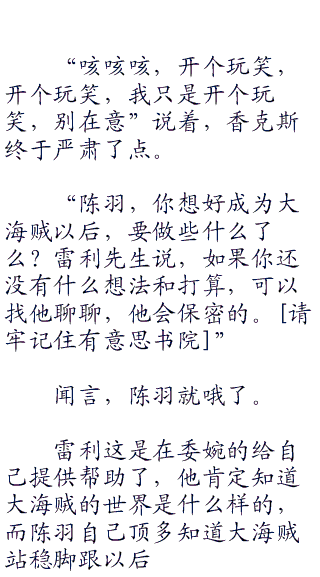 “咳咳咳，开个玩笑，
开个玩笑，我只是开个玩
笑，别在意”说着，香克斯
终于严肃了点。
“陈羽，你想好成为大
海贼以后，要做些什么了
么？雷利先生说，如果你还
没有什么想法和打算，可以
找他聊聊，他会保密的。[请
牢记住有意思书院]”
闻言，陈羽就哦了。
雷利这是在委婉的给自
己提供帮助了，他肯定知道
大海贼的世界是什么样的，
而陈羽自己顶多知道大海贼
站稳脚跟以后